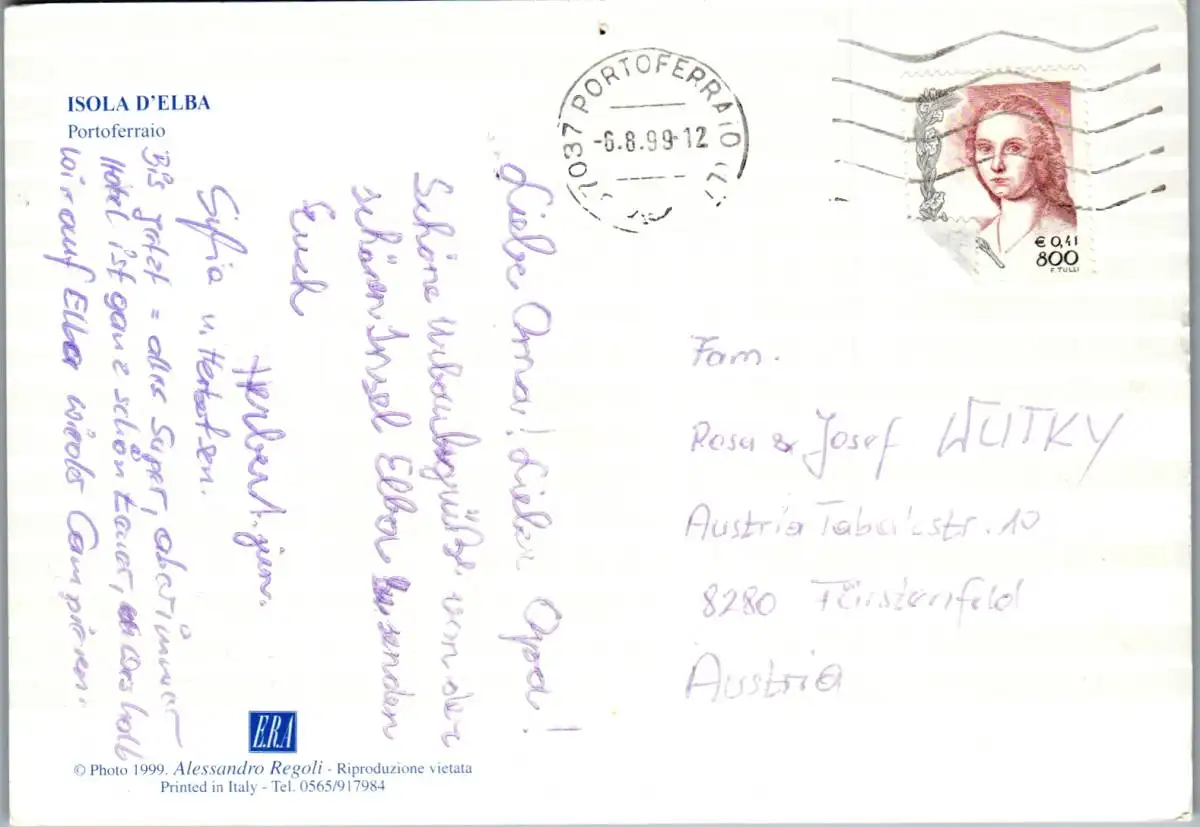 ISOLA D'ELBA
Portoferraio
57037 PORTOFERRAIO (LI)
-6.8.99-12
€ 0,41
800
F. TULLI
Liebe Oma! Lieber Opa!
Schöne Urlaubsgrüße von der
schönen Insel Elba senden
Euch
Herbert jun.
u. Herbert sen.
Bis jetzt = alles Super, aber immer
Hotel ist ganz schön teuer, weshalb
wir auf Elba wieder Campieren.
Fam.
Rosa & Josef WUTKY
Austria Tabakstr. 10
8280 Fürstenfeld
Austria
ERA
© Photo 1999. Alessandro Regoli - Riproduzione vietata
Printed in Italy - Tel. 0565/917984